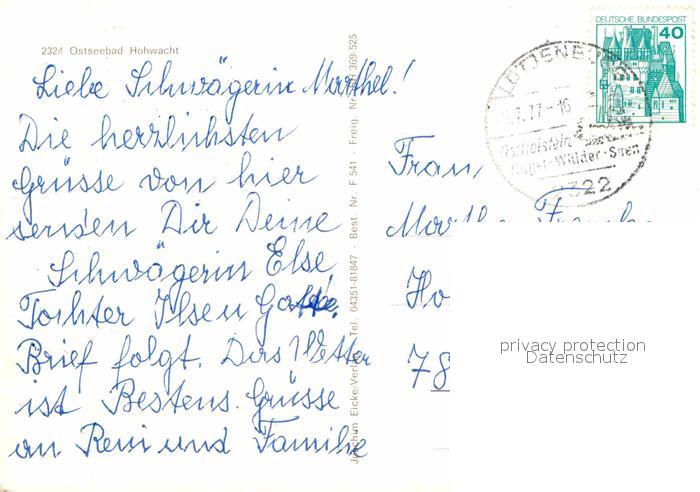 2324 Ostseebad Hohwacht
Liebe Schwägerin Marthel!
Die herzlichsten
Grüsse von hier
senden Dir Deine
Schwägerin Else
Tochter Ilse u Gatte.
Brief folgt. Das Wetter
ist Bestens. Grüsse
an Reni und Familie
Joachim Eicke-Verl Tel. 04351-81847 · Best. Nr. F 541 · Freig. Nr. 369-525
DEUTSCHE BUNDESPOST
40
LÜTJENBURG
.77-16
Hügel-Wälder-Seen
2322
Frau
Ho
78
privacy protection
Datenschutz